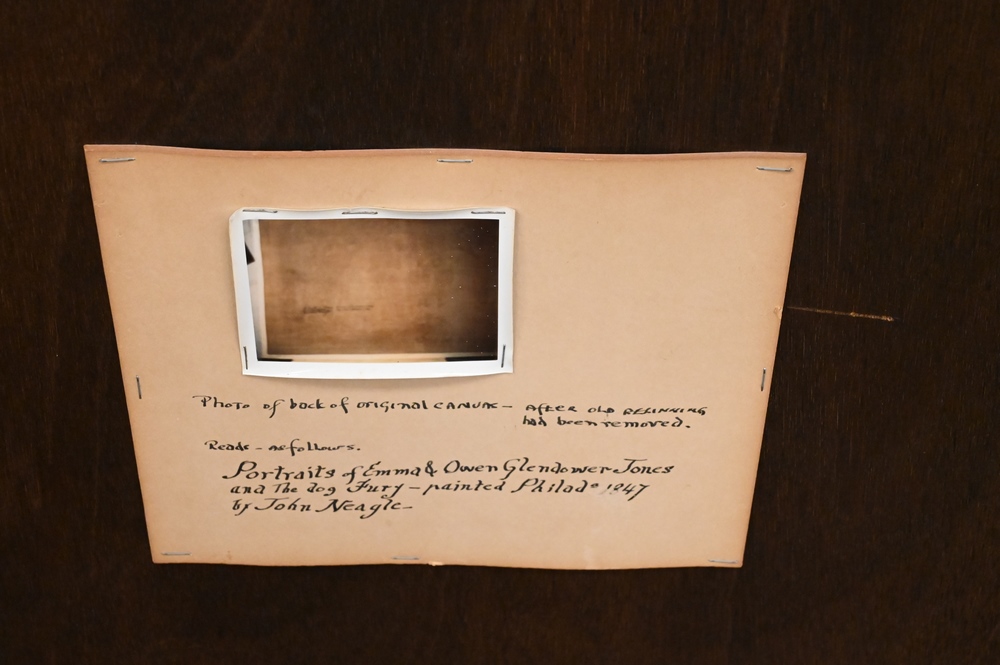 Photo of back of original canvas – AFTER OLD RELINNING
had been removed.
Reads – as follows.
Portraits of Emma & Owen Glendower Jones
and The dog Fury – painted Philada 1847
by John Neagle –